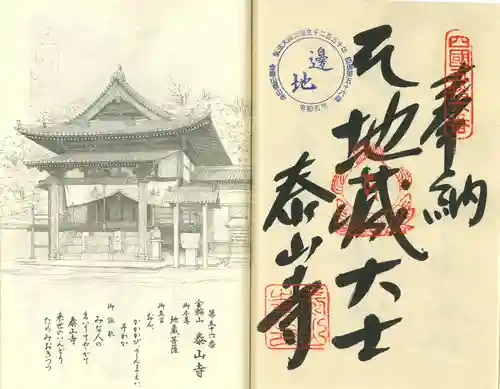 奉納
地蔵大士
泰山寺
邊地
第五十六番
金輪山 泰山寺
御本尊
地蔵菩薩
御真言
おん、
かかかびさんまえい
そわか
御詠歌
みな人の
まいりてやがて
泰山寺
来世のいんどう
たのみおきつつ